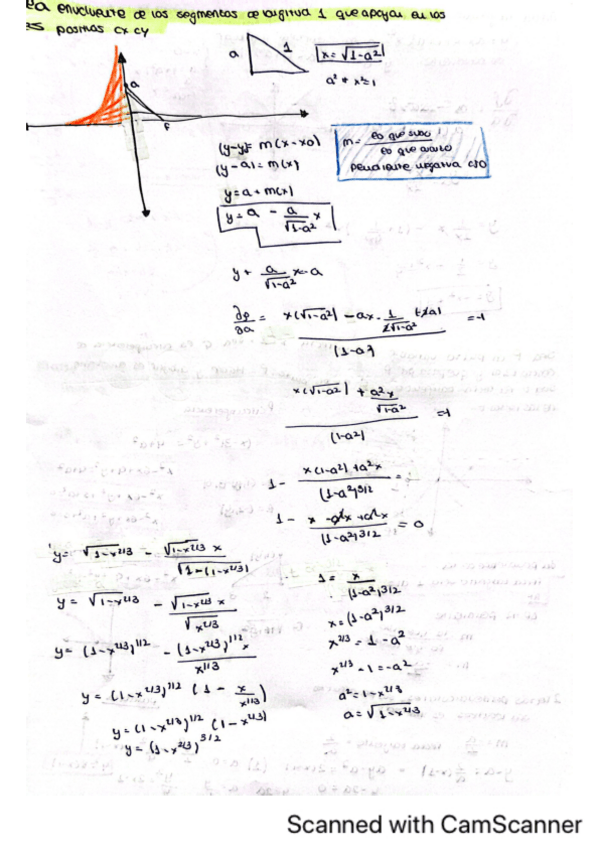 envolvente de los segmentos de longitud 1 que apoyan en los
positivos OX OY
a 1 x = √1-a²
a² + x² = 1
a
(y-y₀)= m(x-x0)
m = lo que sube / lo que avanza
(y-a) = m(x)
pendiente negativa
y = a + m(x)
y = a - a/√1-a² x
y + a/√1-a² x = a
∂φ/∂a = x(√1-a²) - ax · 1/2√1-a² (-2a) / (1-a²) = -1
x(√1-a²) + a²x/√1-a² / (1-a²) = -1
1 - x(1-a²) + a²x / (1-a²)3/2 =
1 - x - a²x + a²x / (1-a²)3/2 = 0
y = √1-x2/3 - √1-x2/3 x / √1-(1-x2/3)
1 = x / (1-a²)3/2
y = √1-x2/3 - √1-x2/3 x / √x2/3
x = (1-a²)3/2
y = (1-x2/3)1/2 - (1-x2/3)1/2 x / x1/3
x2/3 = 1 - a²
x2/3 - 1 = -a²
y = (1-x2/3)1/2 (1 - x/x1/3)
a² = 1-x2/3
y = (1-x2/3)1/2 (1-x2/3)
a = √1-x2/3
y = (1-x2/3)3/2
Scanned with CamScanner